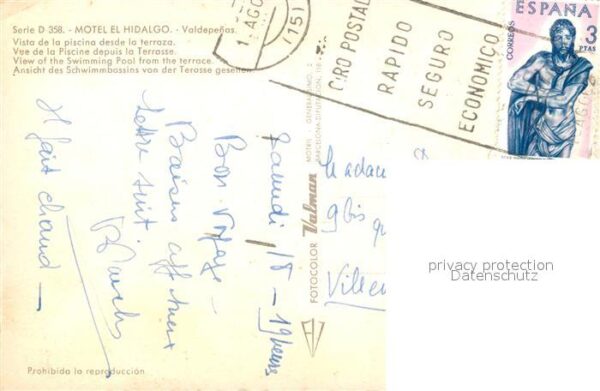 Serie D 358. - MOTEL EL HIDALGO. - Valdepeñas.
Vista de la piscina desde la terraza.
Vee de la Piscine depuis la Terrasse.
View of the Swimming Pool from the terrace.
Ansicht des Schwimmbassins von der Terasse gesehen.
AGO
(15)
GIRO POSTAL
RAPIDO
SEGURO
ECONOMICO
ESPAÑA
CORREOS
3
PTAS
Samedi 18 - 19 heures
Bon voyage -
Baisers
Lettre suit
Il fait chaud -
FOTOCOLOR Valman
Madame
9 bis
privacy protection
Datenschutz
Prohibida la reproducción